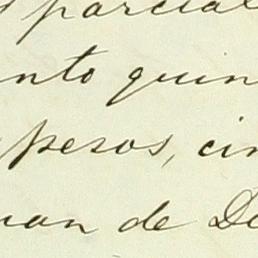 parcial
nto quin
pesos, cin
uan de De